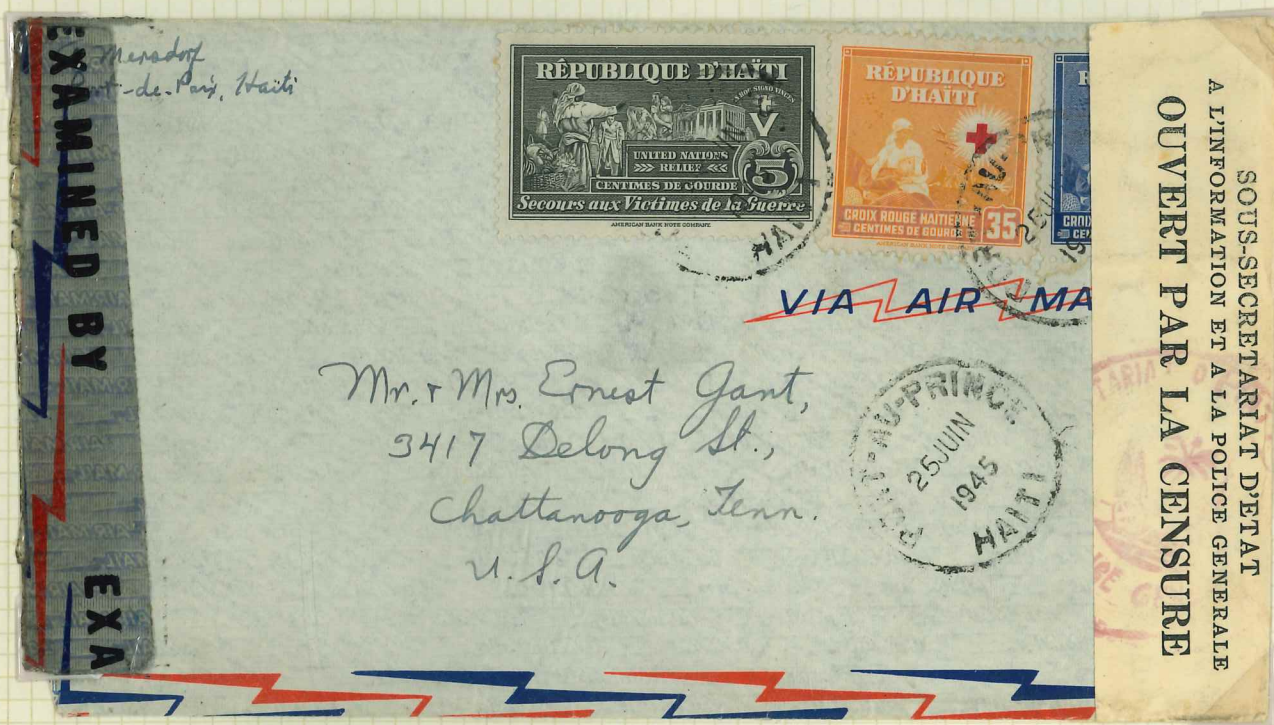 EXAMINED BY
EXA
Mersdorf
-de-Paix, Haiti
RÉPUBLIQUE D'HAÏTI
UNITED NATIONS
RELIEF
V
5
CENTIMES DE GOURDE
Secours aux Victimes de la Guerre
AMERICAN BANK NOTE COMPANY
HAITI
RÉPUBLIQUE
D'HAÏTI
CROIX ROUGE HAITIENNE
CENTIMES DE GOURDE
35
25 JUI
19
VIA AIR MA
Mr. & Mrs. Ernest Gant,
3417 Delong St.,
Chattanooga, Tenn.
U.S.A.
PORT-AU-PRINCE
25 JUIN
1945
HAITI
SOUS-SECRETARIAT D'ETAT
A L'INFORMATION ET A LA POLICE GENERALE
OUVERT PAR LA CENSURE